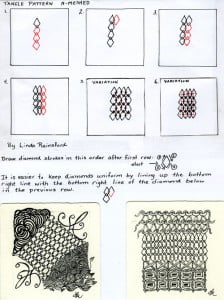 TANGLE PATTERN A-MESHED
1. 2. 3.
4. 5. VARIATION 6. VARIATION
By Linda Rainsford
Draw diamond strokes in this order after first row.
start
It is easier to keep diamonds uniform by lining up the bottom
right line with the bottom right line of the diamond below
in the previous row.